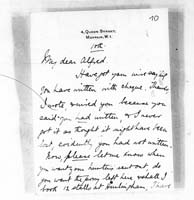 10
4, QUEEN STREET,
MAYFAIR, W.1.
10th
My dear Alfred.
Have got your wire saying
you have written with cheque. Thanks
I wrote, & wired you because you
said you had written, & I never
got it so thought it might have been
lost, evidently you had not written.
Now please let me know when
you want your hunters sent out, do
you want the pony left here & shall I
book 12 stalls at Hurlingham. I have